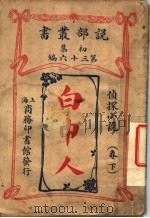 說部叢書
初集
第三十六編
偵探小說
白巾人
(卷下)
上海商務印書館發行